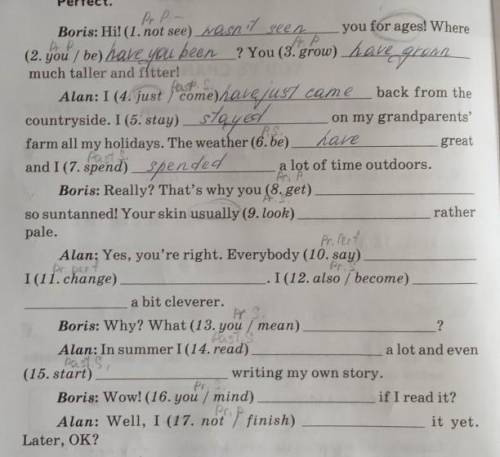 Perfect.
Pr P. -
Boris: Hi! (1. not see) wasn't seen you for ages! Where
Pr P.
(2. you / be) have you been ? You (3. grow) have grown
much taller and fitter!
Past S.
Alan: I (4. just / come) have just came back from the
countryside. I (5. stay) stayed on my grandparents'
P.S.
farm all my holidays. The weather (6. be) have great
Past S.
and I (7. spend) spended a lot of time outdoors.
Pr. P.
Boris: Really? That's why you (8. get)
Pr. S.
so suntanned! Your skin usually (9. look) rather
pale.
Pr. Perf
Alan: Yes, you're right. Everybody (10. say)
Pr. perf
I (11. change) . I (12. also / become)
a bit cleverer.
Pr S.
Boris: Why? What (13. you / mean) ?
Past S.
Alan: In summer I (14. read) a lot and even
Past S.
(15. start) writing my own story.
Pr. S.
Boris: Wow! (16. you / mind) if I read it?
Pr. P
Alan: Well, I (17. not / finish) it yet.
Later, OK?